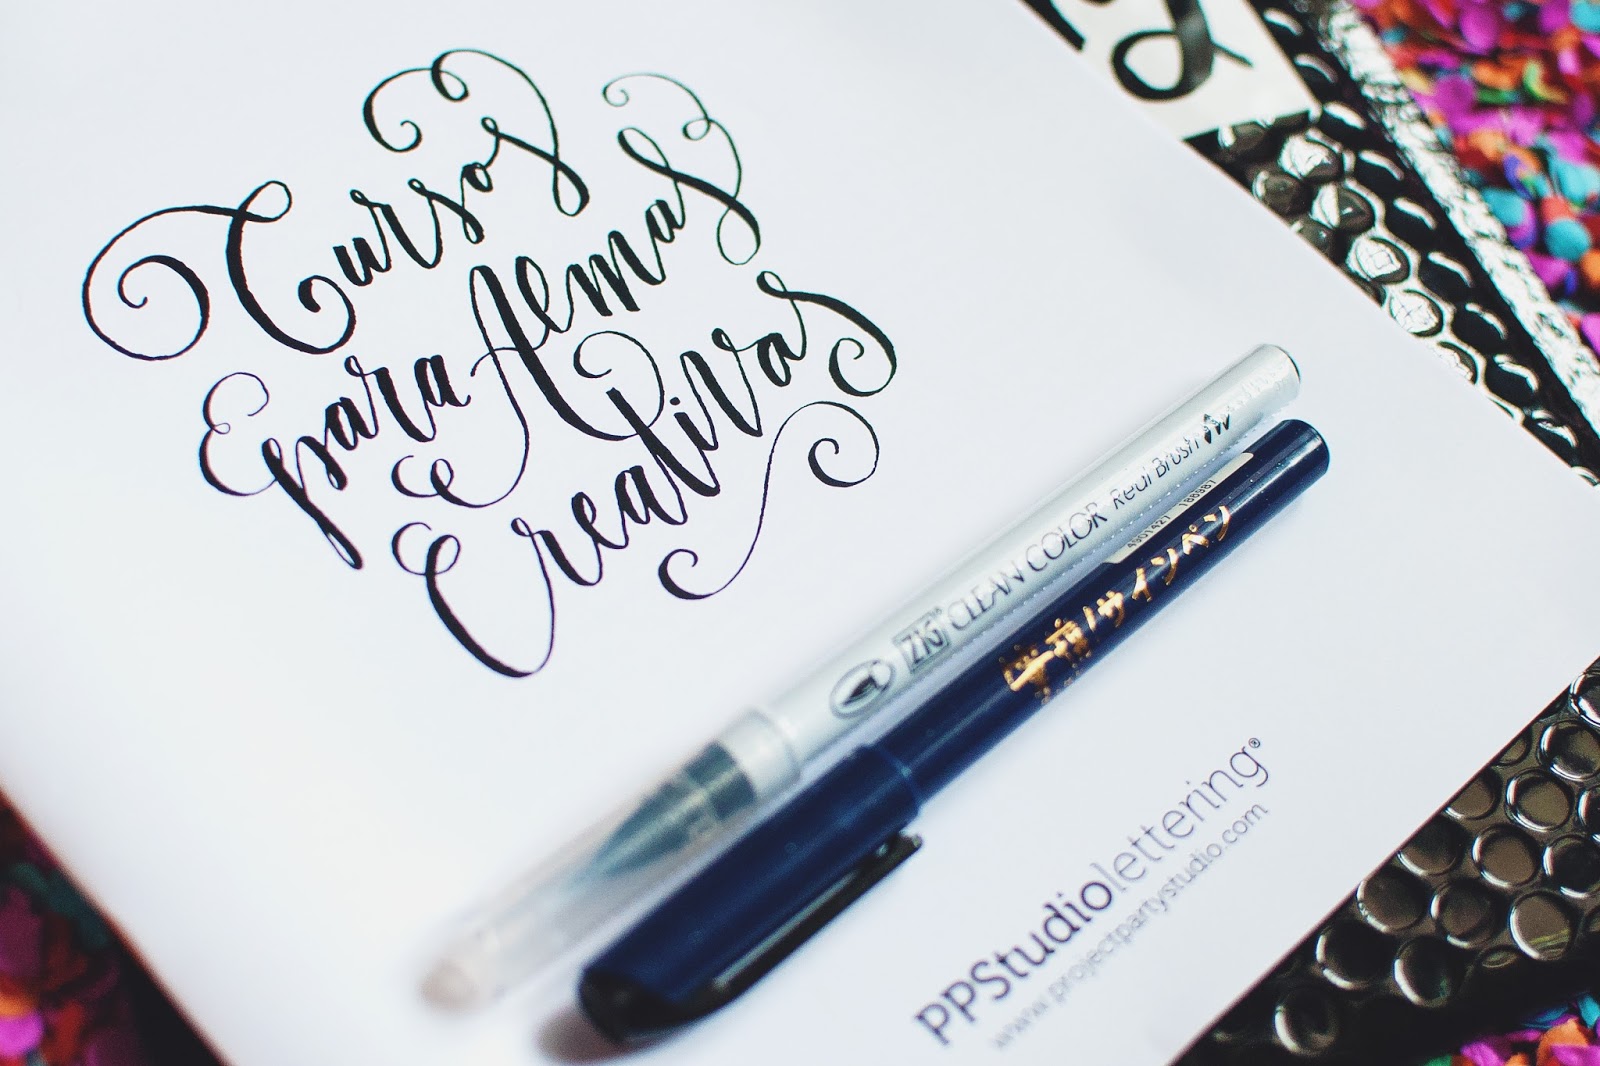 Cursos
para Almas
Creativas
ZIG CLEAN COLOR Real Brush
4901427 188987
筆サインペン
PPStudiolettering®
www.projectpartystudio.com